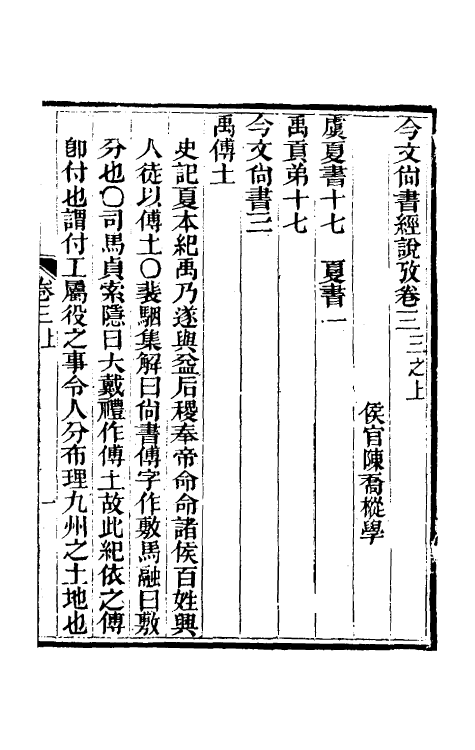 今文尙書經說攷卷三三之上
侯官陳喬樅學
虞夏書十七 夏書一
禹貢弟十七
今文尙書三
禹傅土
史記夏本紀禹乃遂與益后稷奉帝命命諸侯百姓興
人徒以傅土〇裴駰集解曰尙書傅字作敷馬融曰敷
分也〇司馬貞索隱曰大戴禮作傅土故此紀依之傅
卽付也謂付工屬役之事令人分布理九州之土地也
卷三上 一